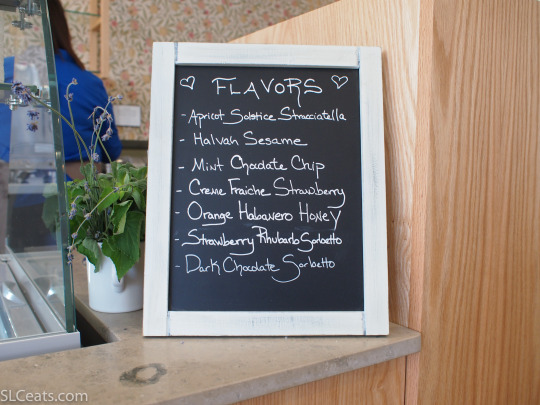 ♡ FLAVORS ♡
- Apricot Solstice Stracciatella
- Halvah Sesame
- Mint Chocolate Chip
- Creme Fraiche Strawberry
- Orange Habanero Honey
- Strawberry Rhubarb Sorbetto
- Dark Chocolate Sorbetto
SLCeats.com